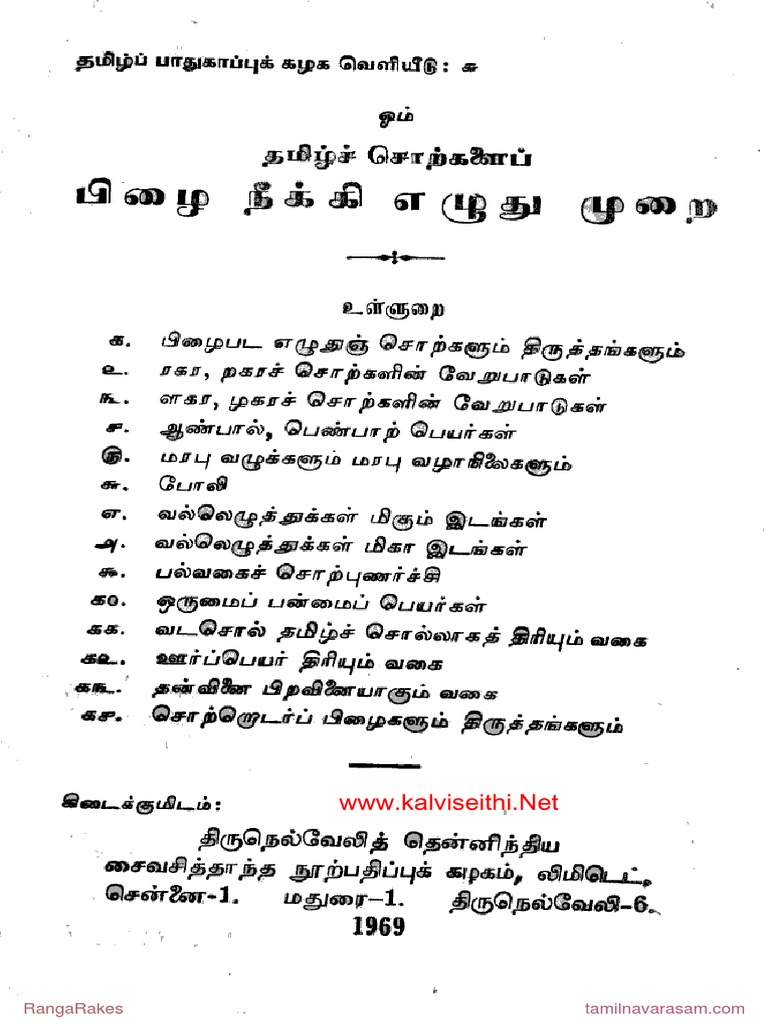 தமிழ்ப் பாதுகாப்புக் கழக வெளியீடு: ௬
ஓம்
தமிழ்ச் சொற்களைப்
பிழை நீக்கி எழுது முறை
உள்ளுறை
௧. பிழைபட எழுதுஞ் சொற்களும் திருத்தங்களும்
௨. ரகர, றகரச் சொற்களின் வேறுபாடுகள்
௩. ளகர, ழகரச் சொற்களின் வேறுபாடுகள்
௪. ஆண்பால், பெண்பாற் பெயர்கள்
௫. மரபு வழுக்களும் மரபு வழாநிலைகளும்
௬. போலி
௭. வல்லெழுத்துக்கள் மிகும் இடங்கள்
௮. வல்லெழுத்துக்கள் மிகா இடங்கள்
௯. பல்வகைச் சொற்புணர்ச்சி
௧௦. ஒருமைப் பன்மைப் பெயர்கள்
௧௧. வடசொல் தமிழ்ச் சொல்லாகத் திரியும் வகை
௧௨. ஊர்ப்பெயர் திரியும் வகை
௧௩. தன்வினை பிறவினையாகும் வகை
௧௪. சொற்றொடர்ப் பிழைகளும் திருத்தங்களும்
கிடைக்குமிடம்:
www.kalviseithi.Net
திருநெல்வேலித் தென்னிந்திய
சைவசித்தாந்த நூற்பதிப்புக் கழகம், லிமிடெட்,
சென்னை-1. மதுரை-1. திருநெல்வேலி-6.
1969
RangaRakes
tamilnavarasam.com